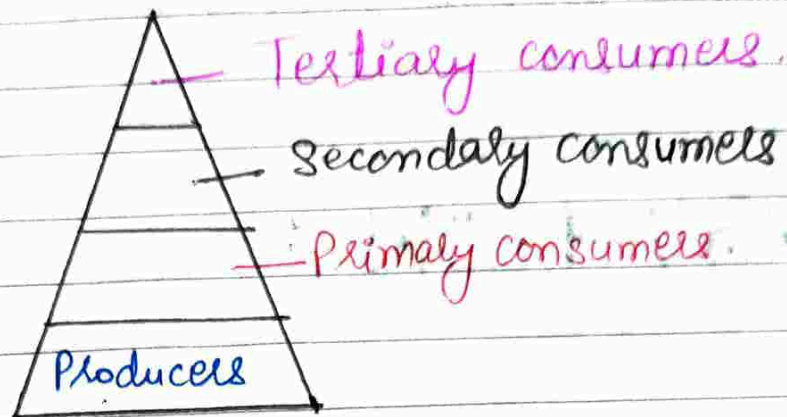 Tertiary consumers.
Secondary consumers
Primary consumers.
Producers